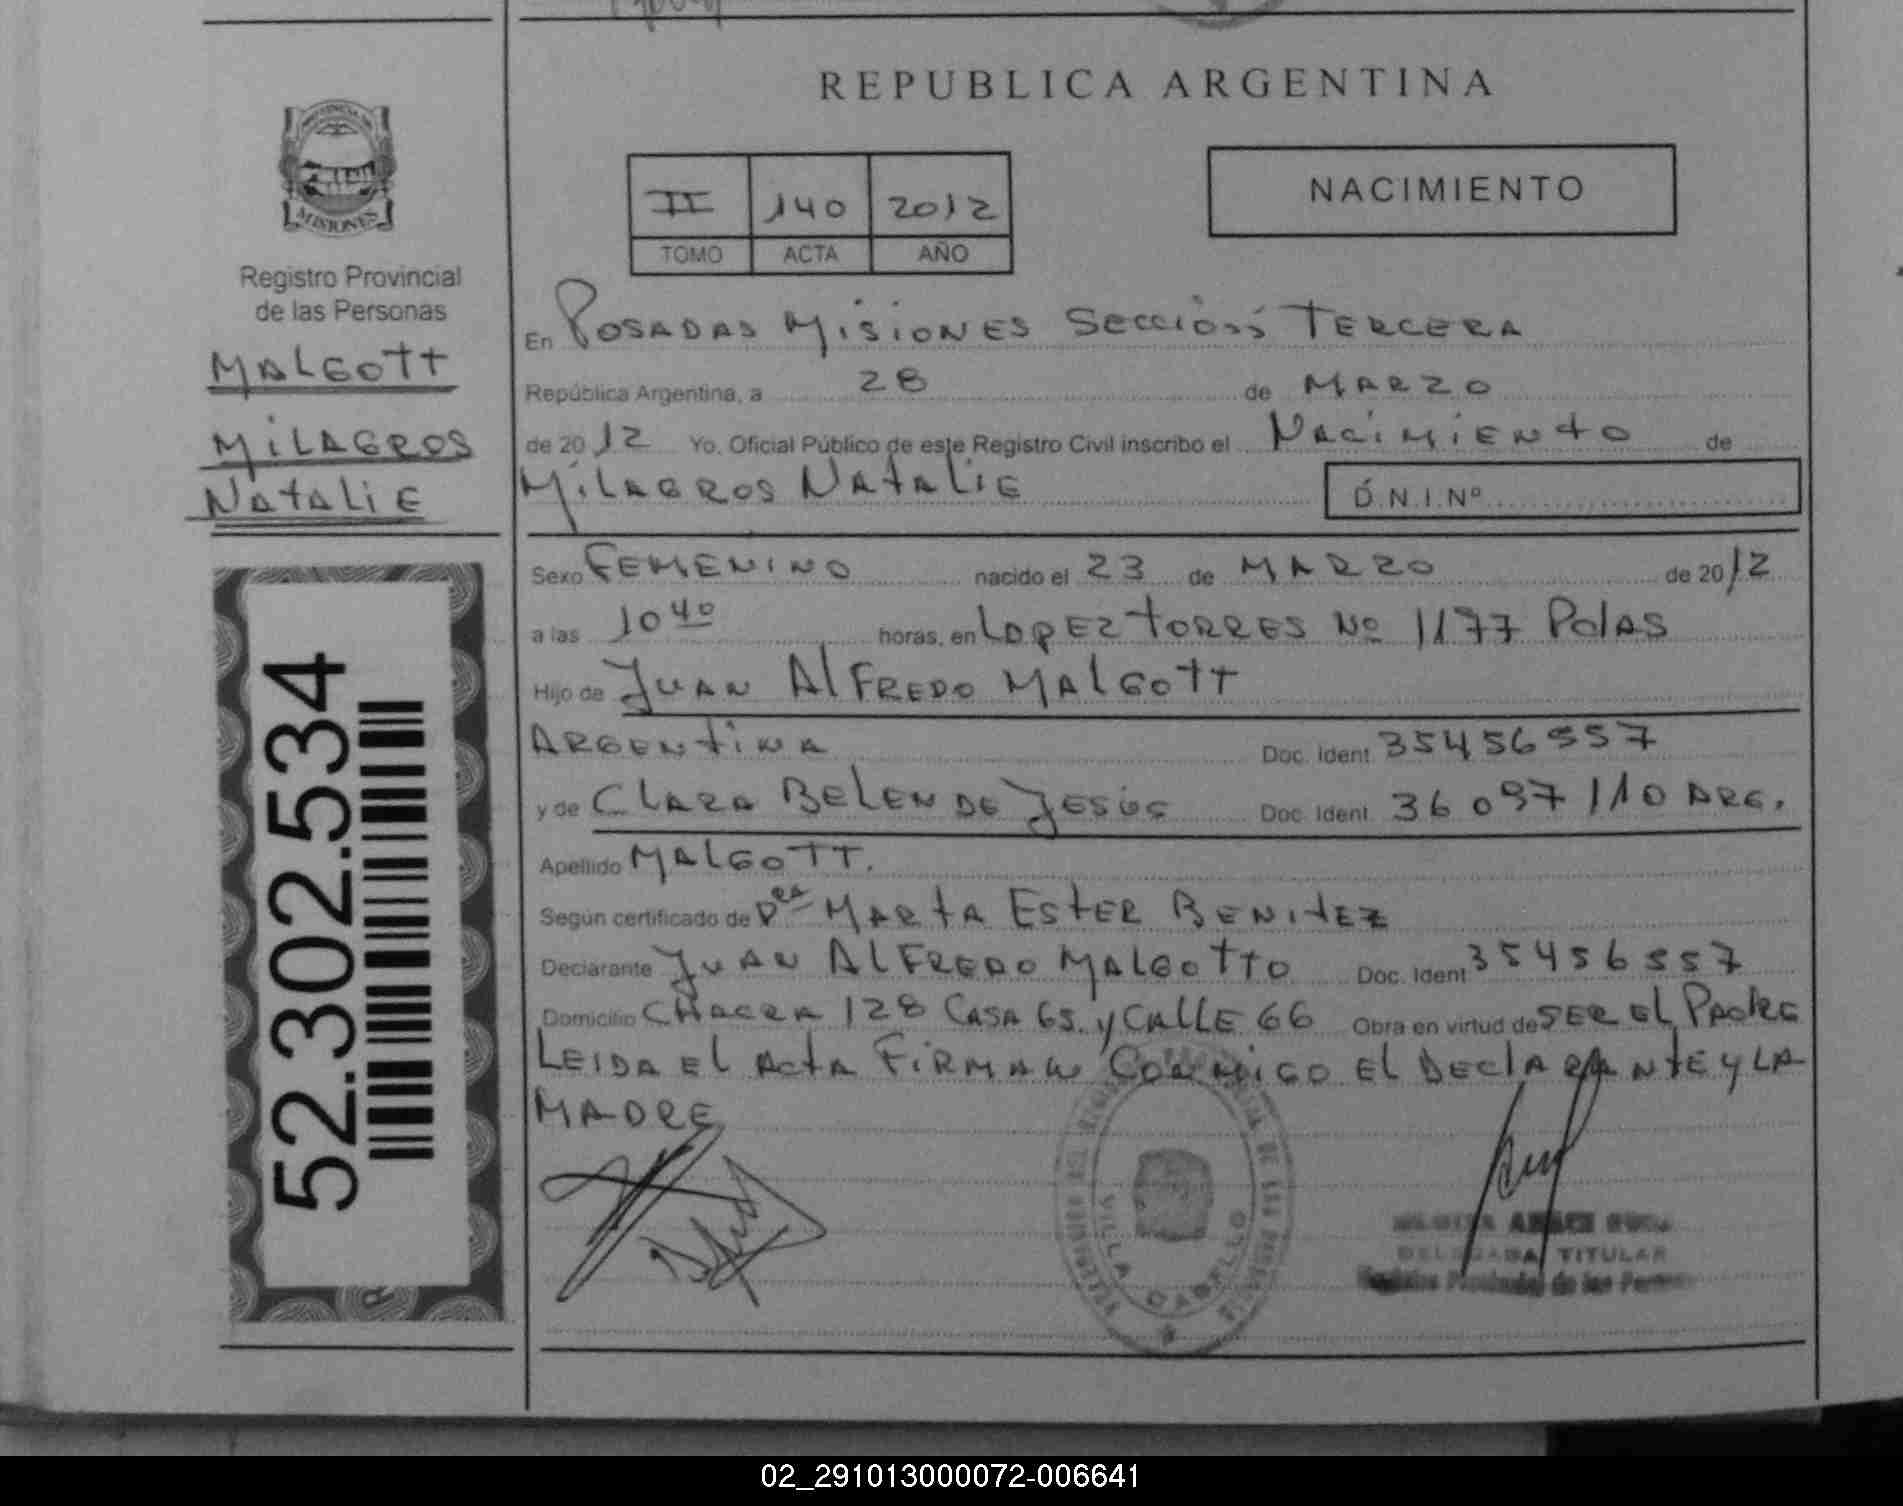 REPUBLICA ARGENTINA
PROVINCIA DE
MISIONES
Registro Provincial
de las Personas
MALGOTT
MILAGROS
NATALIE
52.302.534
II 140 2012
TOMO ACTA AÑO
NACIMIENTO
En POSADAS MISIONES SECCIÓN TERCERA
República Argentina, a 28 de MARZO
de 2012 Yo, Oficial Público de este Registro Civil inscribo el NACIMIENTO de
MILAGROS NATALIE D.N.I.Nº
Sexo FEMENINO nacido el 23 de MARZO de 2012
a las 10 40 horas, en LOPEZ TORRES Nº 1177 Pdas
Hijo de JUAN ALFREDO MALGOTT
ARGENTINA Doc. Ident 35456557
y de CLARA BELEN DE JESÚS Doc. Ident. 36 097 110 ARG.
Apellido MALGOTT.
Según certificado de Dra MARTA ESTER BENITEZ
Declarante JUAN ALFREDO MALGOTTO Doc. Ident 35456557
Domicilio CHACRA 128 CASA 65 y CALLE 66 Obra en virtud de SER EL PADRE
LEIDA EL ACTA FIRMAN CONMIGO EL DECLARANTE Y LA
MADRE
VILLA CABELLO
DELEGADA TITULAR
02_291013000072-006641